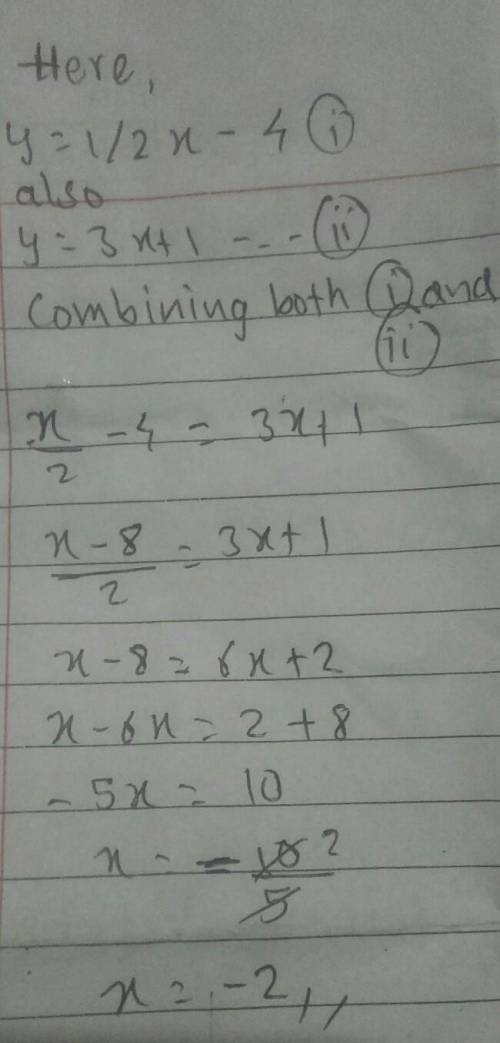 Here,
y = 1/2 x - 4 (i)
also
y = 3x+1 --- (ii)
Combining both (i) and
(ii)
x/2 - 4 = 3x+1
x-8/2 = 3x+1
x-8 = 6x+2
x-6x = 2+8
-5x = 10
x = -10/5 2
x = -2,,